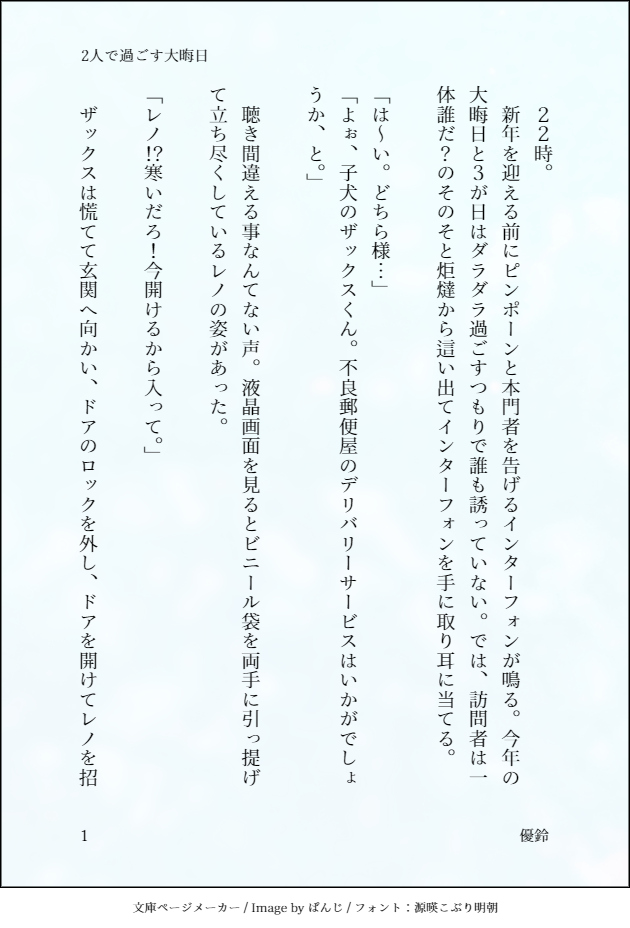 2人で過ごす大晦日
２２時。
新年を迎える前にピンポーンと本門者を告げるインターフォンが鳴る。今年の
大晦日と３が日はダラダラ過ごすつもりで誰も誘っていない。では、訪問者は一
体誰だ？のそのそと炬燵から這い出てインターフォンを手に取り耳に当てる。
「は〜い。どちら様…」
「よぉ、子犬のザックスくん。不良郵便屋のデリバリーサービスはいかがでしょ
うか、と。」
聴き間違える事なんてない声。液晶画面を見るとビニール袋を両手に引っ提げ
て立ち尽くしているレノの姿があった。
「レノ!?寒いだろ！今開けるから入って。」
ザックスは慌てて玄関へ向かい、ドアのロックを外し、ドアを開けてレノを招
優鈴
1
文庫ページメーカー / Image by ぱんじ / フォント：源暎こぶり明朝